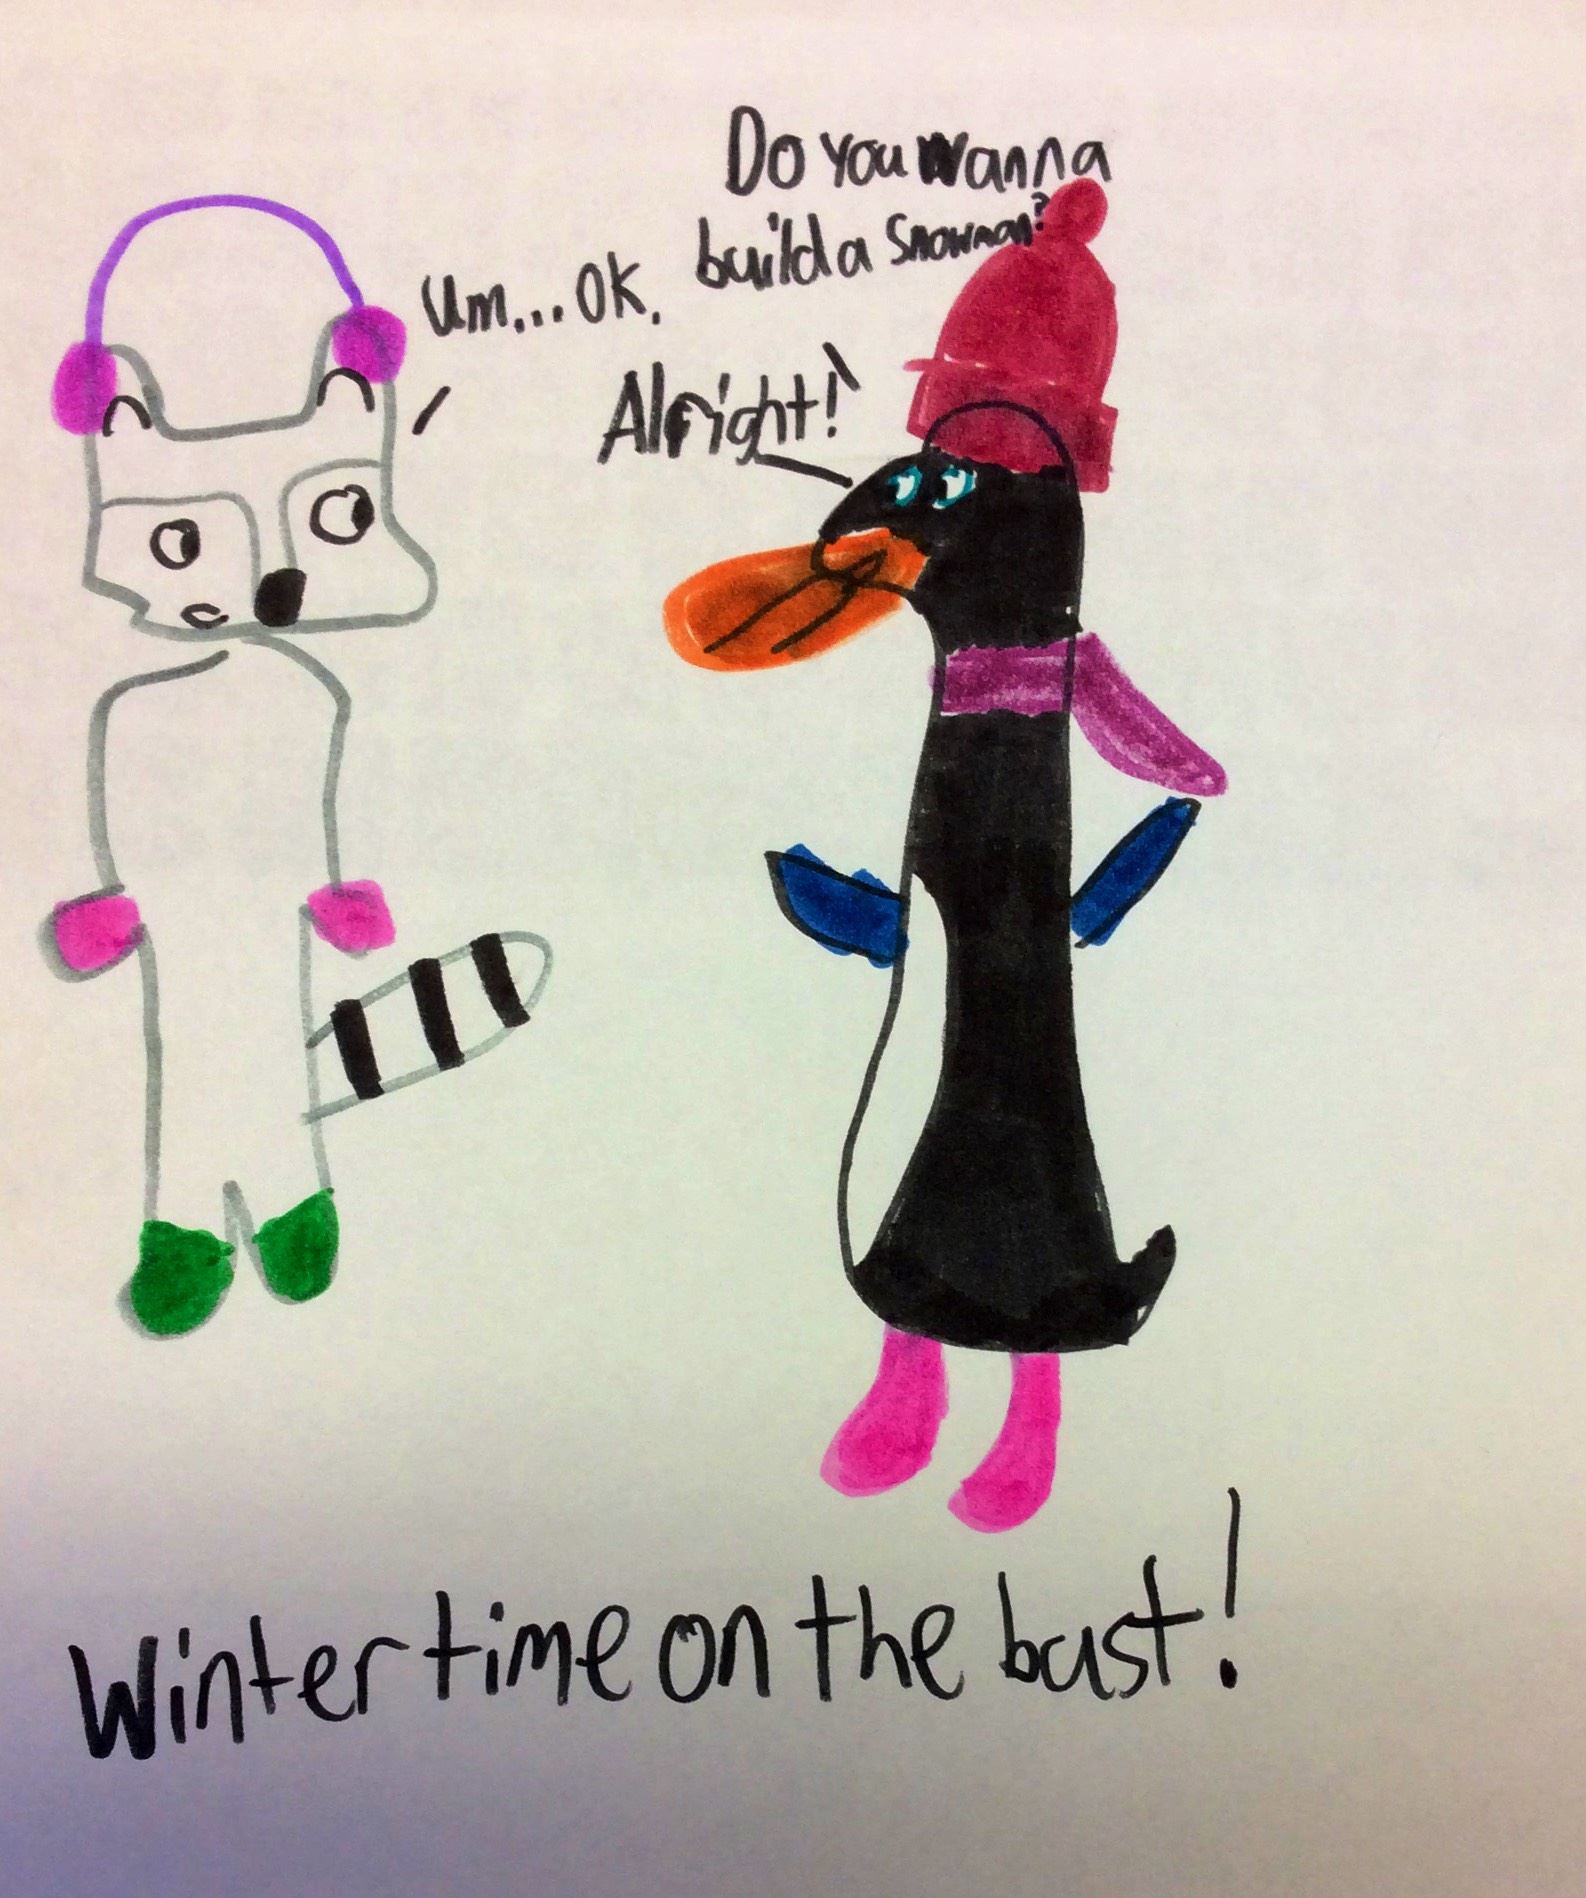 Do You Wanna
build a Snowman?
Um... OK.
Alright!
Winter time on the bust!